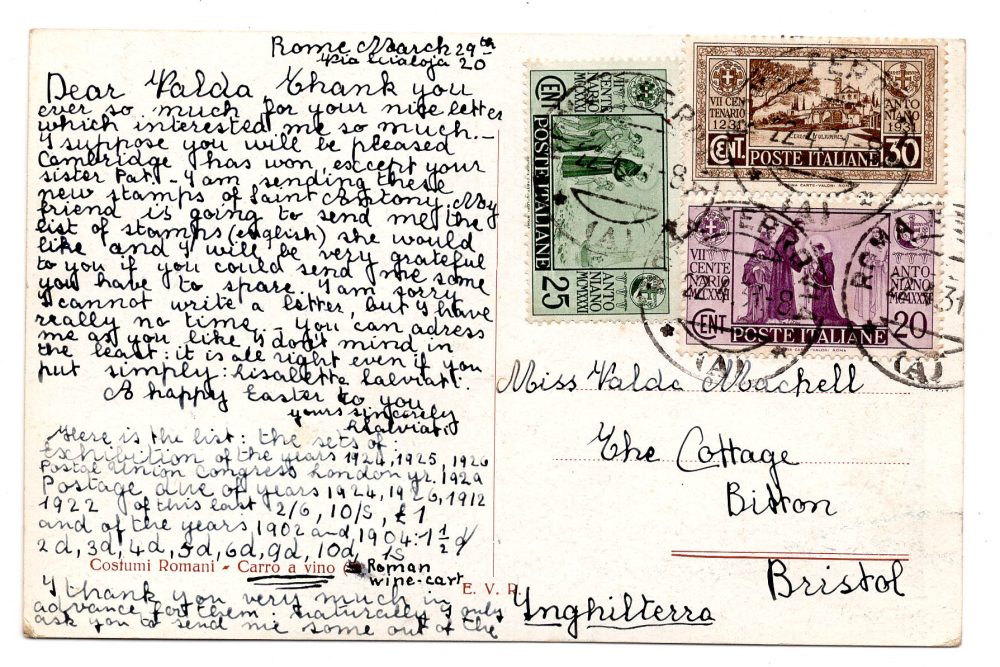 Rome March 29th
Via Scialoja 20
Dear Valda, Thank you
ever so much for your nice letter
which interested me so much. —
I suppose you will be pleased
Cambridge has won, except your
sister Pat. — I am sending these
new stamps of Saint Antony. My
friend is going to send me the
list of stamps (english) she would
like and I will be very grateful
to you if you could send me some
you have to spare. I am sorry
I cannot write a letter, but I have
really no time. — You can adress
me as you like I don't mind in
the least: it is all right even if you
put simply: Lisaletta Salviati.
A happy Easter to you
yours sincerely
LSalviati
Here is the list: the sets of:
Exhibition of the years 1924, 1925, 1926
Postal Union Congress London yr. 1929
Postage due of years 1924, 1926, 1912
1922 of this last 2/6, 10/S, £1
and of the years 1902 and, 1904: 1 1/2 d/
2d, 3d, 4d, 5d, 6d, 9d, 10d, 1S
Costumi Romani - Carro a vino (
Roman
wine-cart
E. V. R.
I thank you very much in
advance for them: naturally I only
ask you to send me some out of the
VII CENTENARIO MCCXXXI
ANTONIANO MCMXXXI
POSTE ITALIANE
CENT 25
VII CENTENARIO 1231
ANTONIANO 1931
CENT. POSTE ITALIANE 30
VII CENTENARIO MCCXXXI
ANTONIANO MCMXXXI
CENT POSTE ITALIANE 20
ROMA
(A)
Miss Valda Machell
The Cottage
Bitton
Bristol
Inghilterra